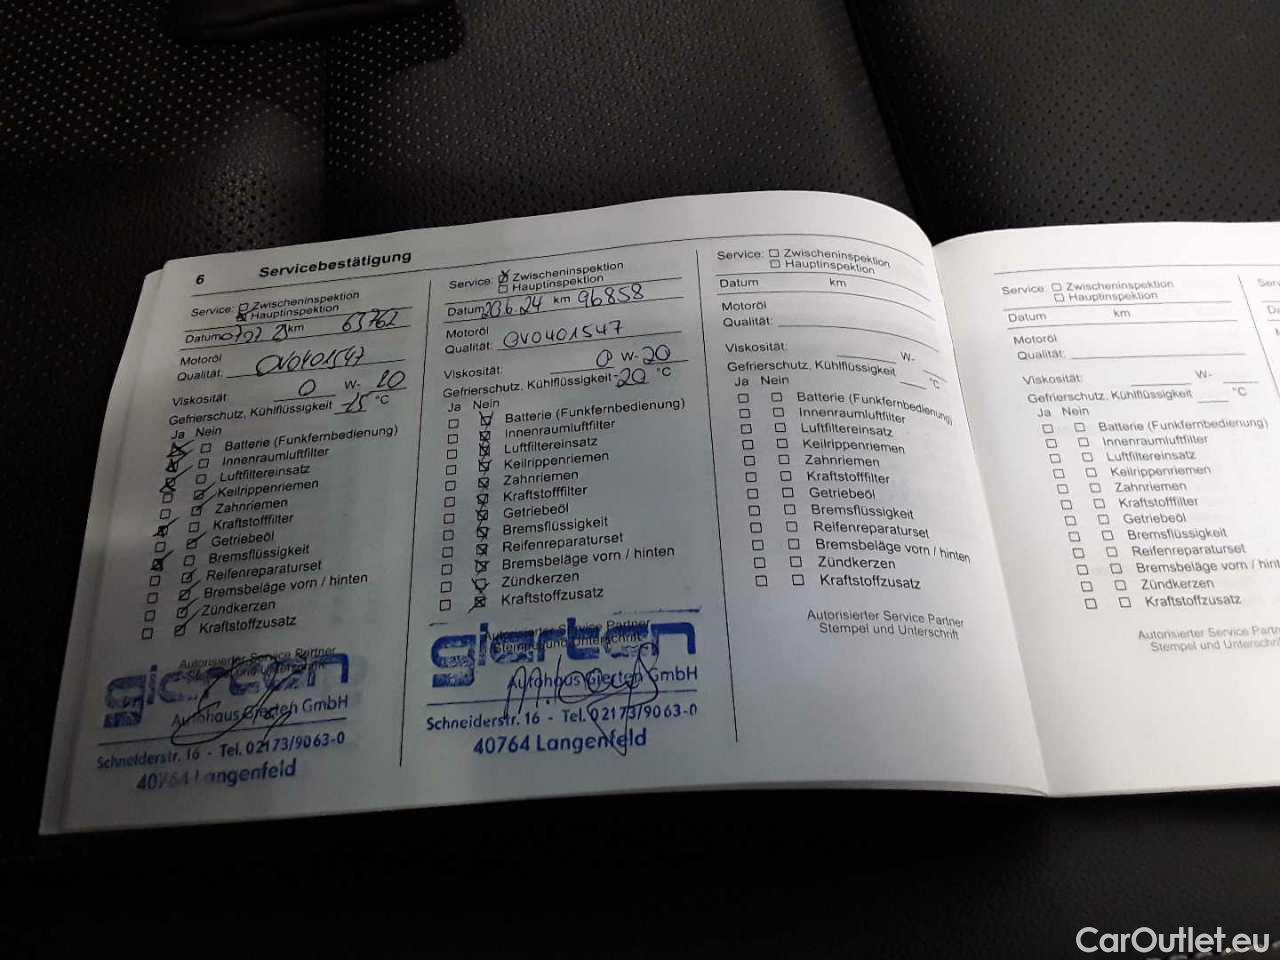 6 Servicebestätigung
Service: Zwischeninspektion
Hauptinspektion
Datum km 63762
Motoröl
Qualität: OV0401547
Viskosität: 0 W- 20
Gefrierschutz, Kühlflüssigkeit -25 °C
Ja Nein
Batterie (Funkfernbedienung)
Innenraumluftfilter
Luftfiltereinsatz
Keilrippenriemen
Zahnriemen
Kraftstofffilter
Getriebeöl
Bremsflüssigkeit
Reifenreparaturset
Bremsbeläge vorn / hinten
Zündkerzen
Kraftstoffzusatz
Autorisierter Service Partner
Stempel und Unterschrift
gierten
Autohaus Gierten GmbH
Schneiderstr. 16 - Tel. 02173/9063-0
40764 Langenfeld
Service: Zwischeninspektion
Hauptinspektion
Datum 20.6.24 km 96858
Motoröl
Qualität: OV0401547
Viskosität: 0 W- 20
Gefrierschutz, Kühlflüssigkeit -20 °C
Ja Nein
Batterie (Funkfernbedienung)
Innenraumluftfilter
Luftfiltereinsatz
Keilrippenriemen
Zahnriemen
Kraftstofffilter
Getriebeöl
Bremsflüssigkeit
Reifenreparaturset
Bremsbeläge vorn / hinten
Zündkerzen
Kraftstoffzusatz
Autorisierter Service Partner
Stempel und Unterschrift
gierten
Autohaus Gierten GmbH
Schneiderstr. 16 - Tel. 02173/9063-0
40764 Langenfeld
Service: Zwischeninspektion
Hauptinspektion
Datum km
Motoröl
Qualität:
Viskosität: W-
Gefrierschutz, Kühlflüssigkeit °C
Ja Nein
Batterie (Funkfernbedienung)
Innenraumluftfilter
Luftfiltereinsatz
Keilrippenriemen
Zahnriemen
Kraftstofffilter
Getriebeöl
Bremsflüssigkeit
Reifenreparaturset
Bremsbeläge vorn / hinten
Zündkerzen
Kraftstoffzusatz
Autorisierter Service Partner
Stempel und Unterschrift
Service: Zwischeninspektion
Hauptinspektion
Datum km
Motoröl
Qualität:
Viskosität: W-
Gefrierschutz, Kühlflüssigkeit °C
Ja Nein
Batterie (Funkfernbedienung)
Innenraumluftfilter
Luftfiltereinsatz
Keilrippenriemen
Zahnriemen
Kraftstofffilter
Getriebeöl
Bremsflüssigkeit
Reifenreparaturset
Bremsbeläge vorn / hint
Zündkerzen
Kraftstoffzusatz
Autorisierter Service Partner
Stempel und Unterschrift
CarOutlet.eu